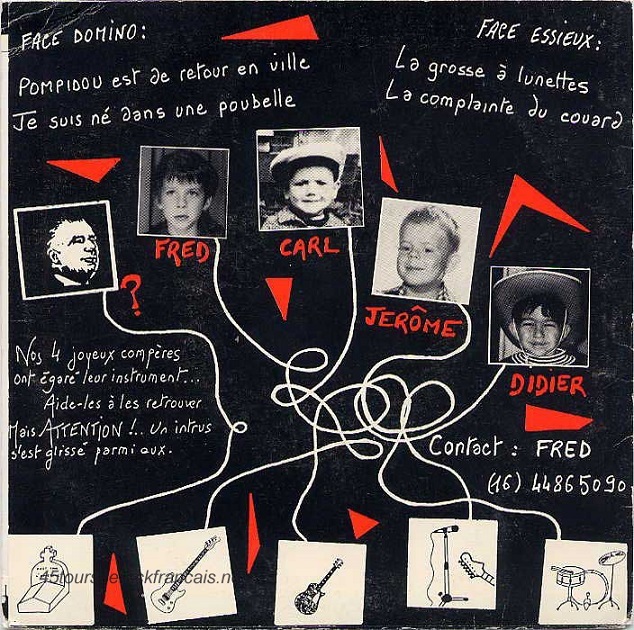 FACE DOMINO:
POMPIDOU est de retour en ville
Je suis né dans une poubelle
FACE ESSIEUX:
La grosse à lunettes
La complainte du couard
FRED
CARL
JERÔME
DIDIER
?
Nos 4 joyeux compères
ont égaré leur instrument...
Aide-les à les retrouver
Mais ATTENTION !.. Un intrus
s'est glissé parmi eux.
Contact : FRED
(16) 44865090